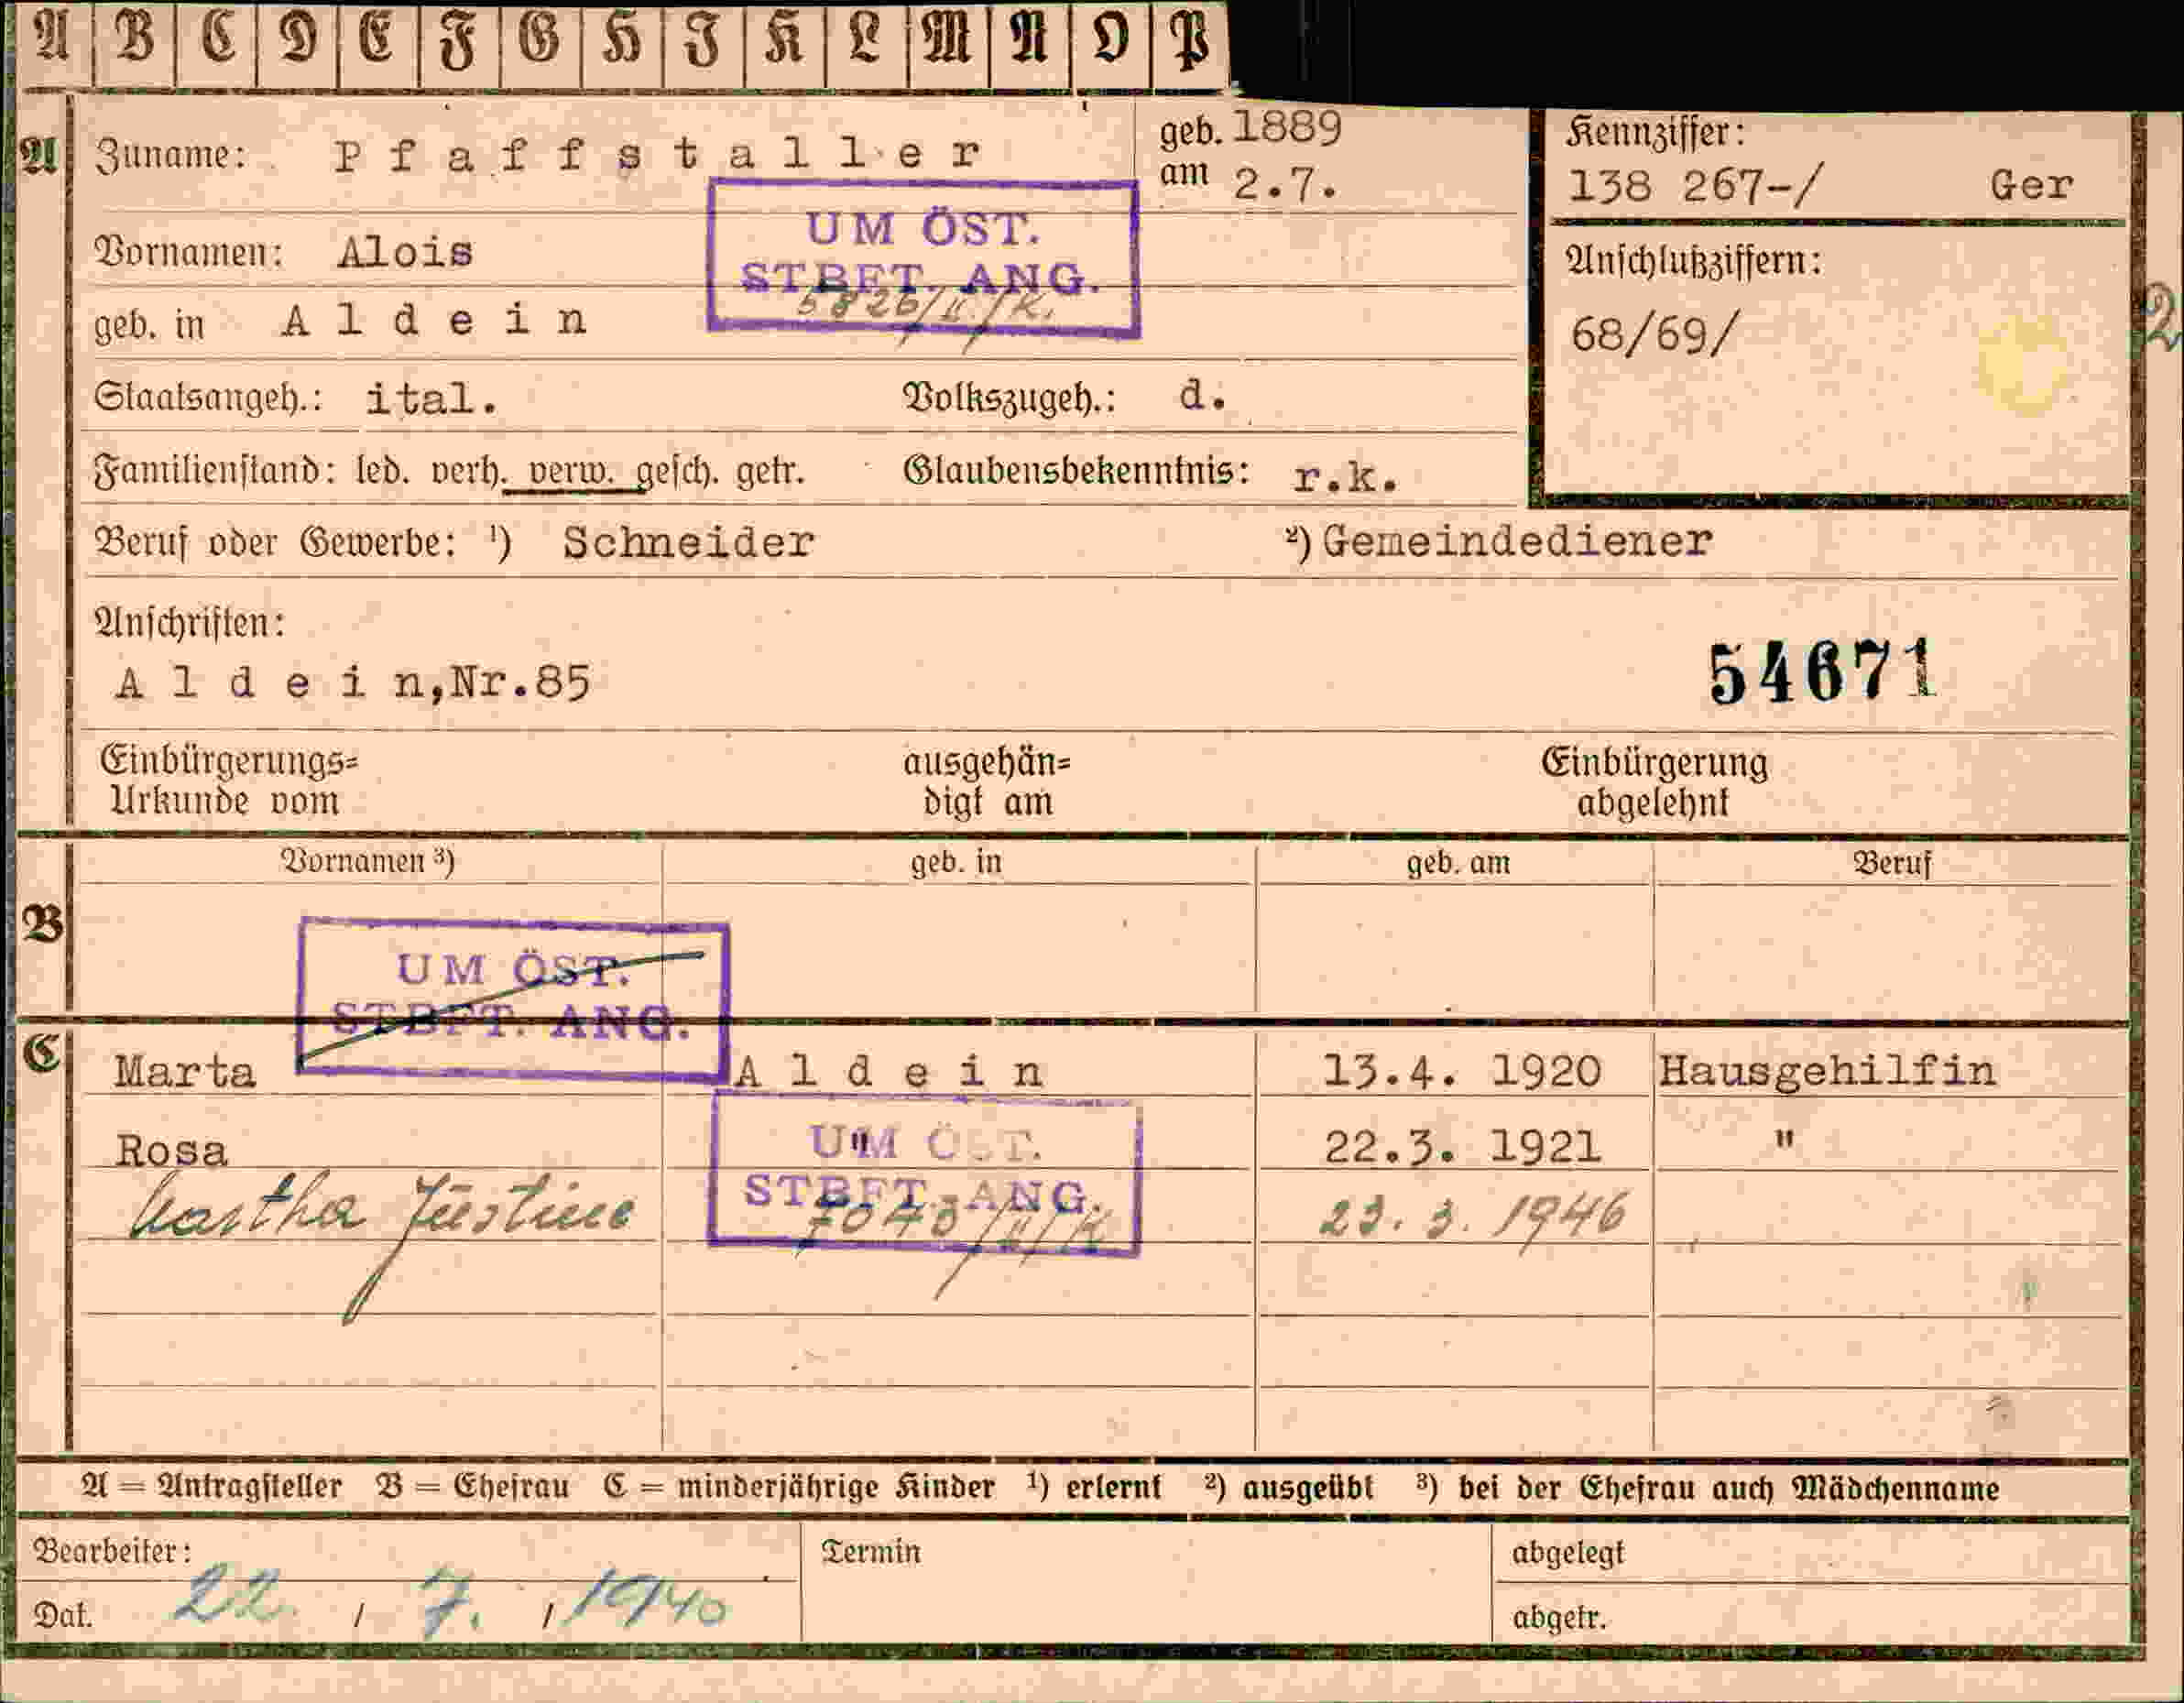 A B C D E F G H I K L M N O P
A Zuname: Pfaffstaller geb. 1889
am 2.7.
Kennziffer:
138 267-/ Ger
UM ÖST.
STBFT. ANG.
5826/II/K.
Vornamen: Alois
Anschlußziffern:
68/69/
2
geb. in Aldein
Staatsangeh.: ital. Volkszugeh.: d.
Familienstand: led. verh. verw. gesch. getr. Glaubensbekenntnis: r.k.
Beruf oder Gewerbe: ¹) Schneider ²) Gemeindediener
Anschriften:
Aldein,Nr.85
54671
Einbürgerungs= ausgehän= Einbürgerung
Urkunde vom digt am abgelehnt
Vornamen ³) geb. in geb. am Beruf
B
UM ÖST.
STBFT. ANG.
C Marta Aldein 13.4. 1920 Hausgehilfin
Rosa " 22.3. 1921 "
UM ÖST.
STBFT. ANG.
Martha Justine 7043/II/K 23.3.1946
A = Antragsteller B = Ehefrau C = minderjährige Kinder ¹) erlernt ²) ausgeübt ³) bei der Ehefrau auch Mädchenname
Bearbeiter: Termin abgelegt
Dat. 22. / 7. / 1940 abgetr.